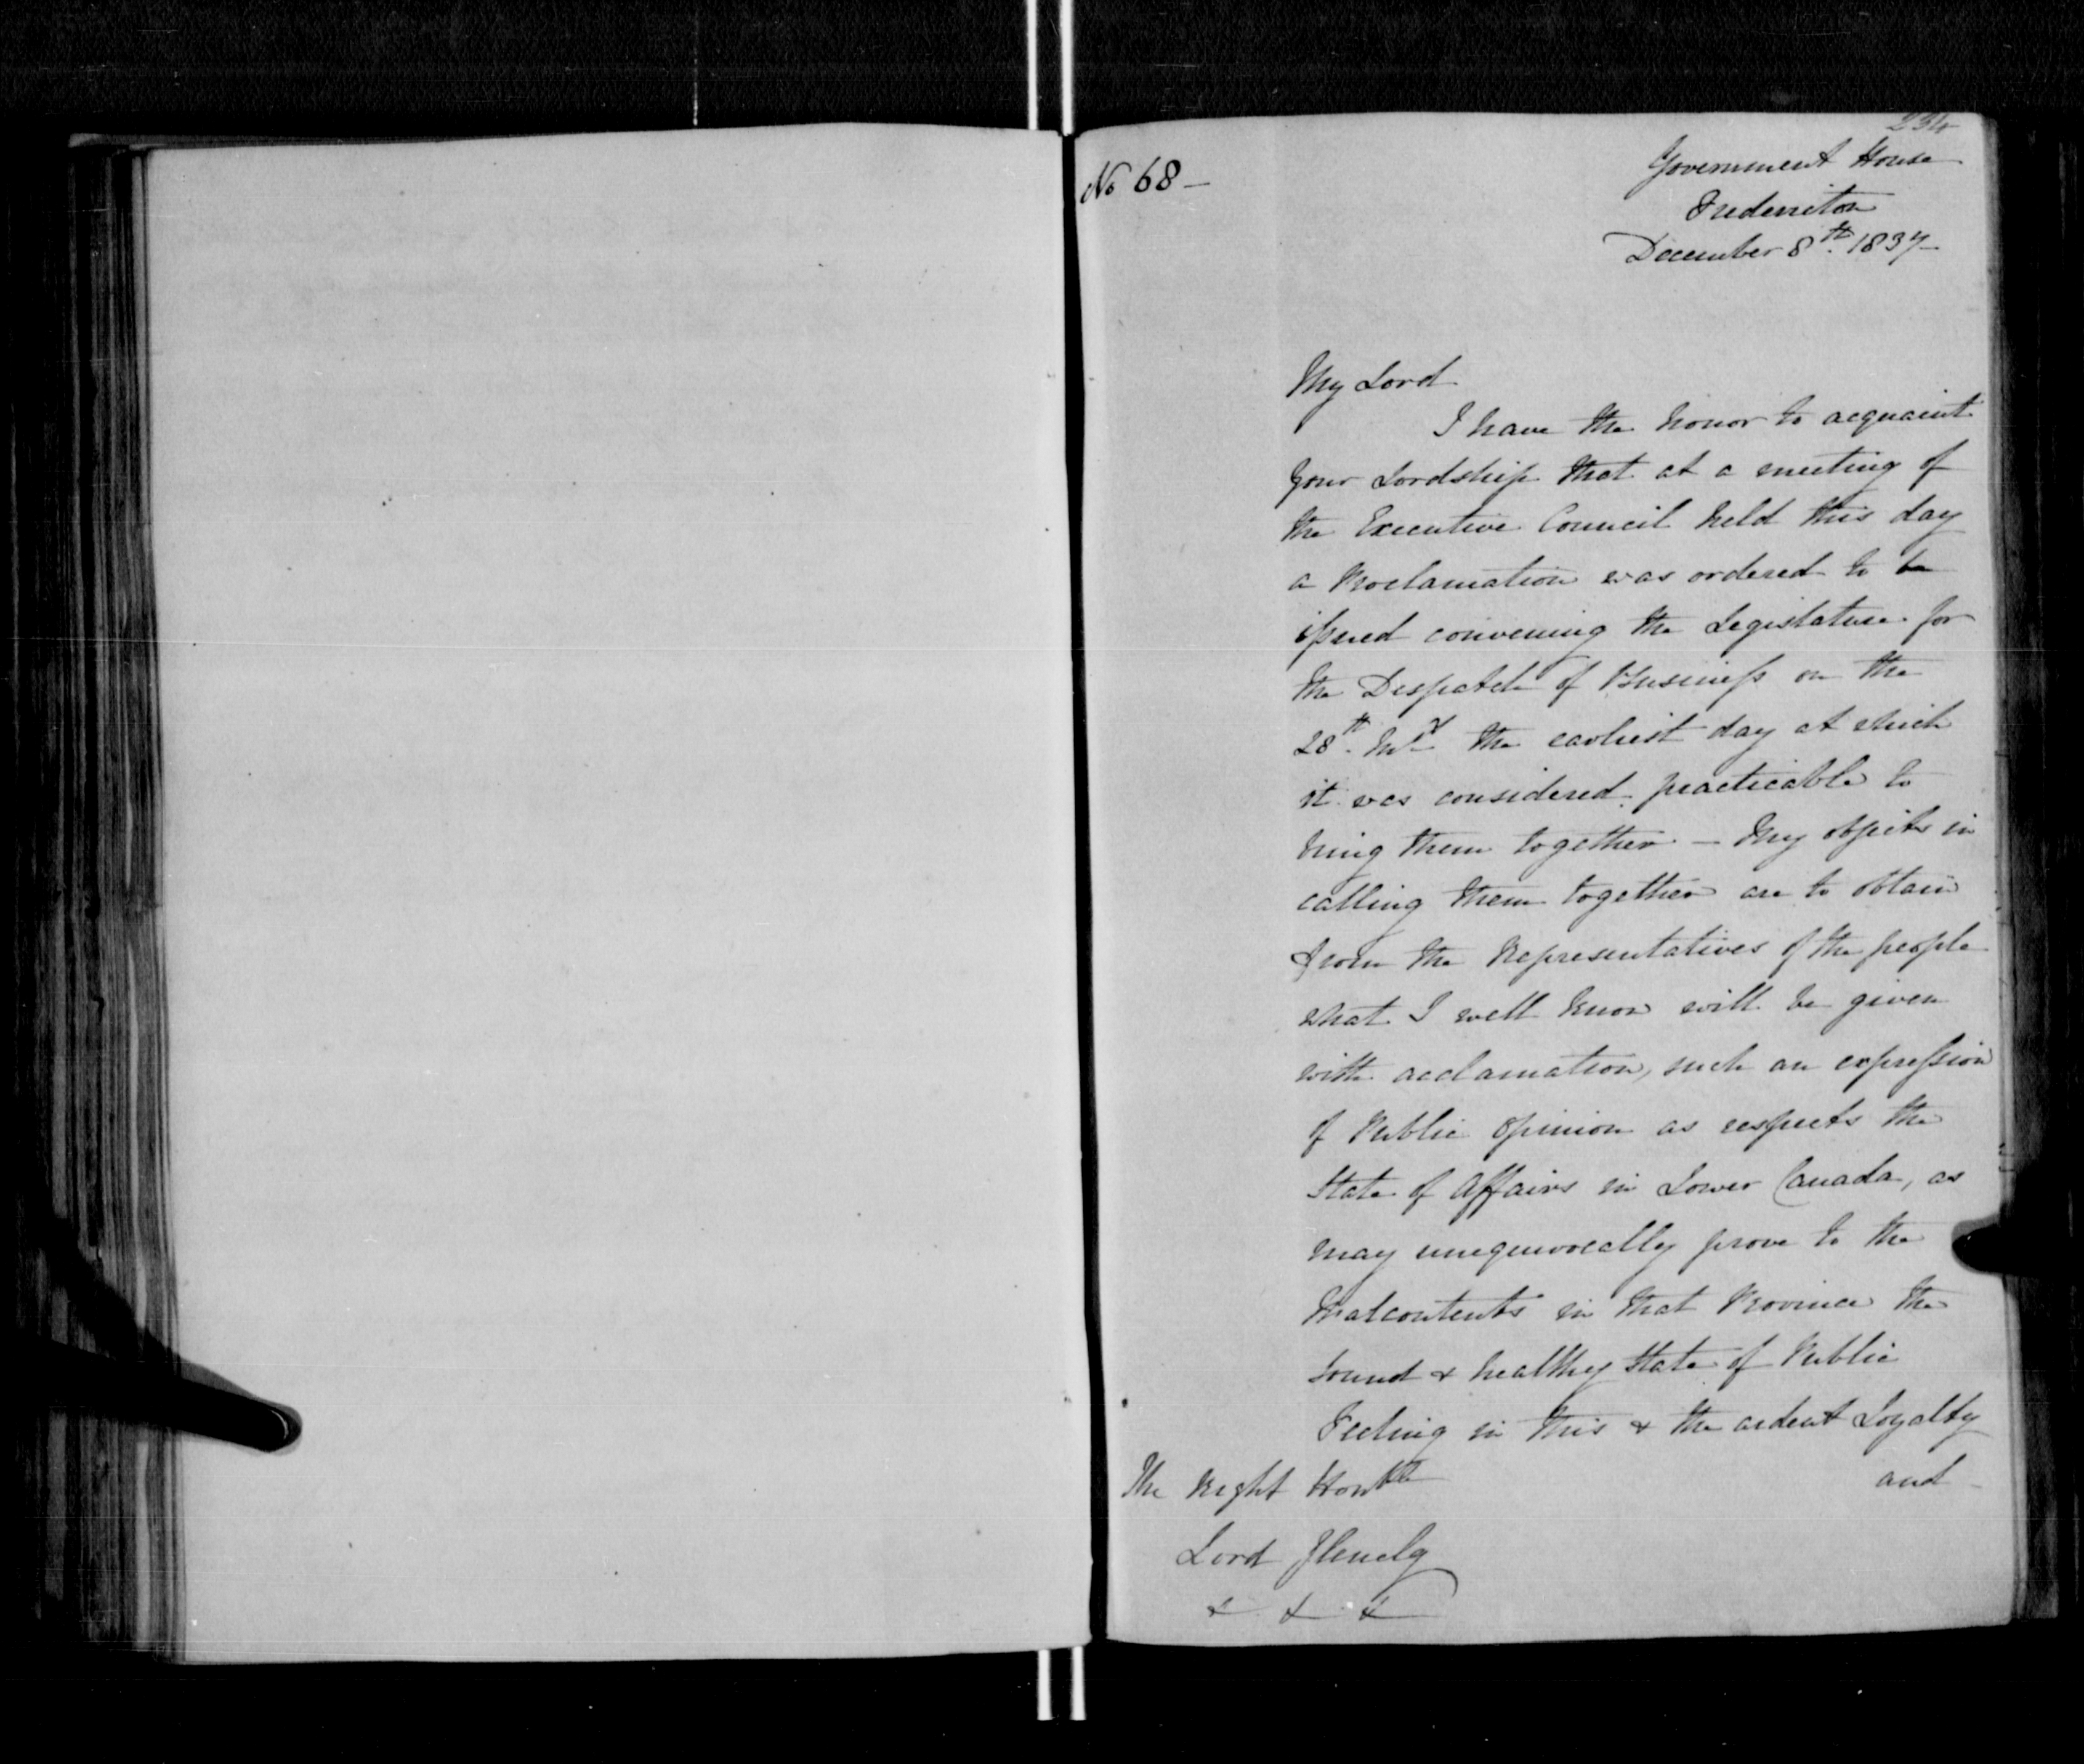 234
No 68 -
Government House
Fredericton
December 8th. 1837
My Lord
I have the honor to acquaint
Your Lordship that at a meeting of
the Executive Council held this day
a Proclamation was ordered to be
issued convening the Legislature for
the Despatch of Business on the
28th. the earliest day at which
it was considered practicable to
bring them together - My objects in
calling them together are to obtain
from the Representatives of the people
what I well know will be given
with acclamation, such an expression
of Public Opinion as respects the
State of Affairs in Lower Canada, as
may unequivocally prove to the
Malcontents in that Province the
sound & healthy State of Public
Feeling in this & the ardent Loyalty
and
The Right Honble
Lord Glenelg
& & &